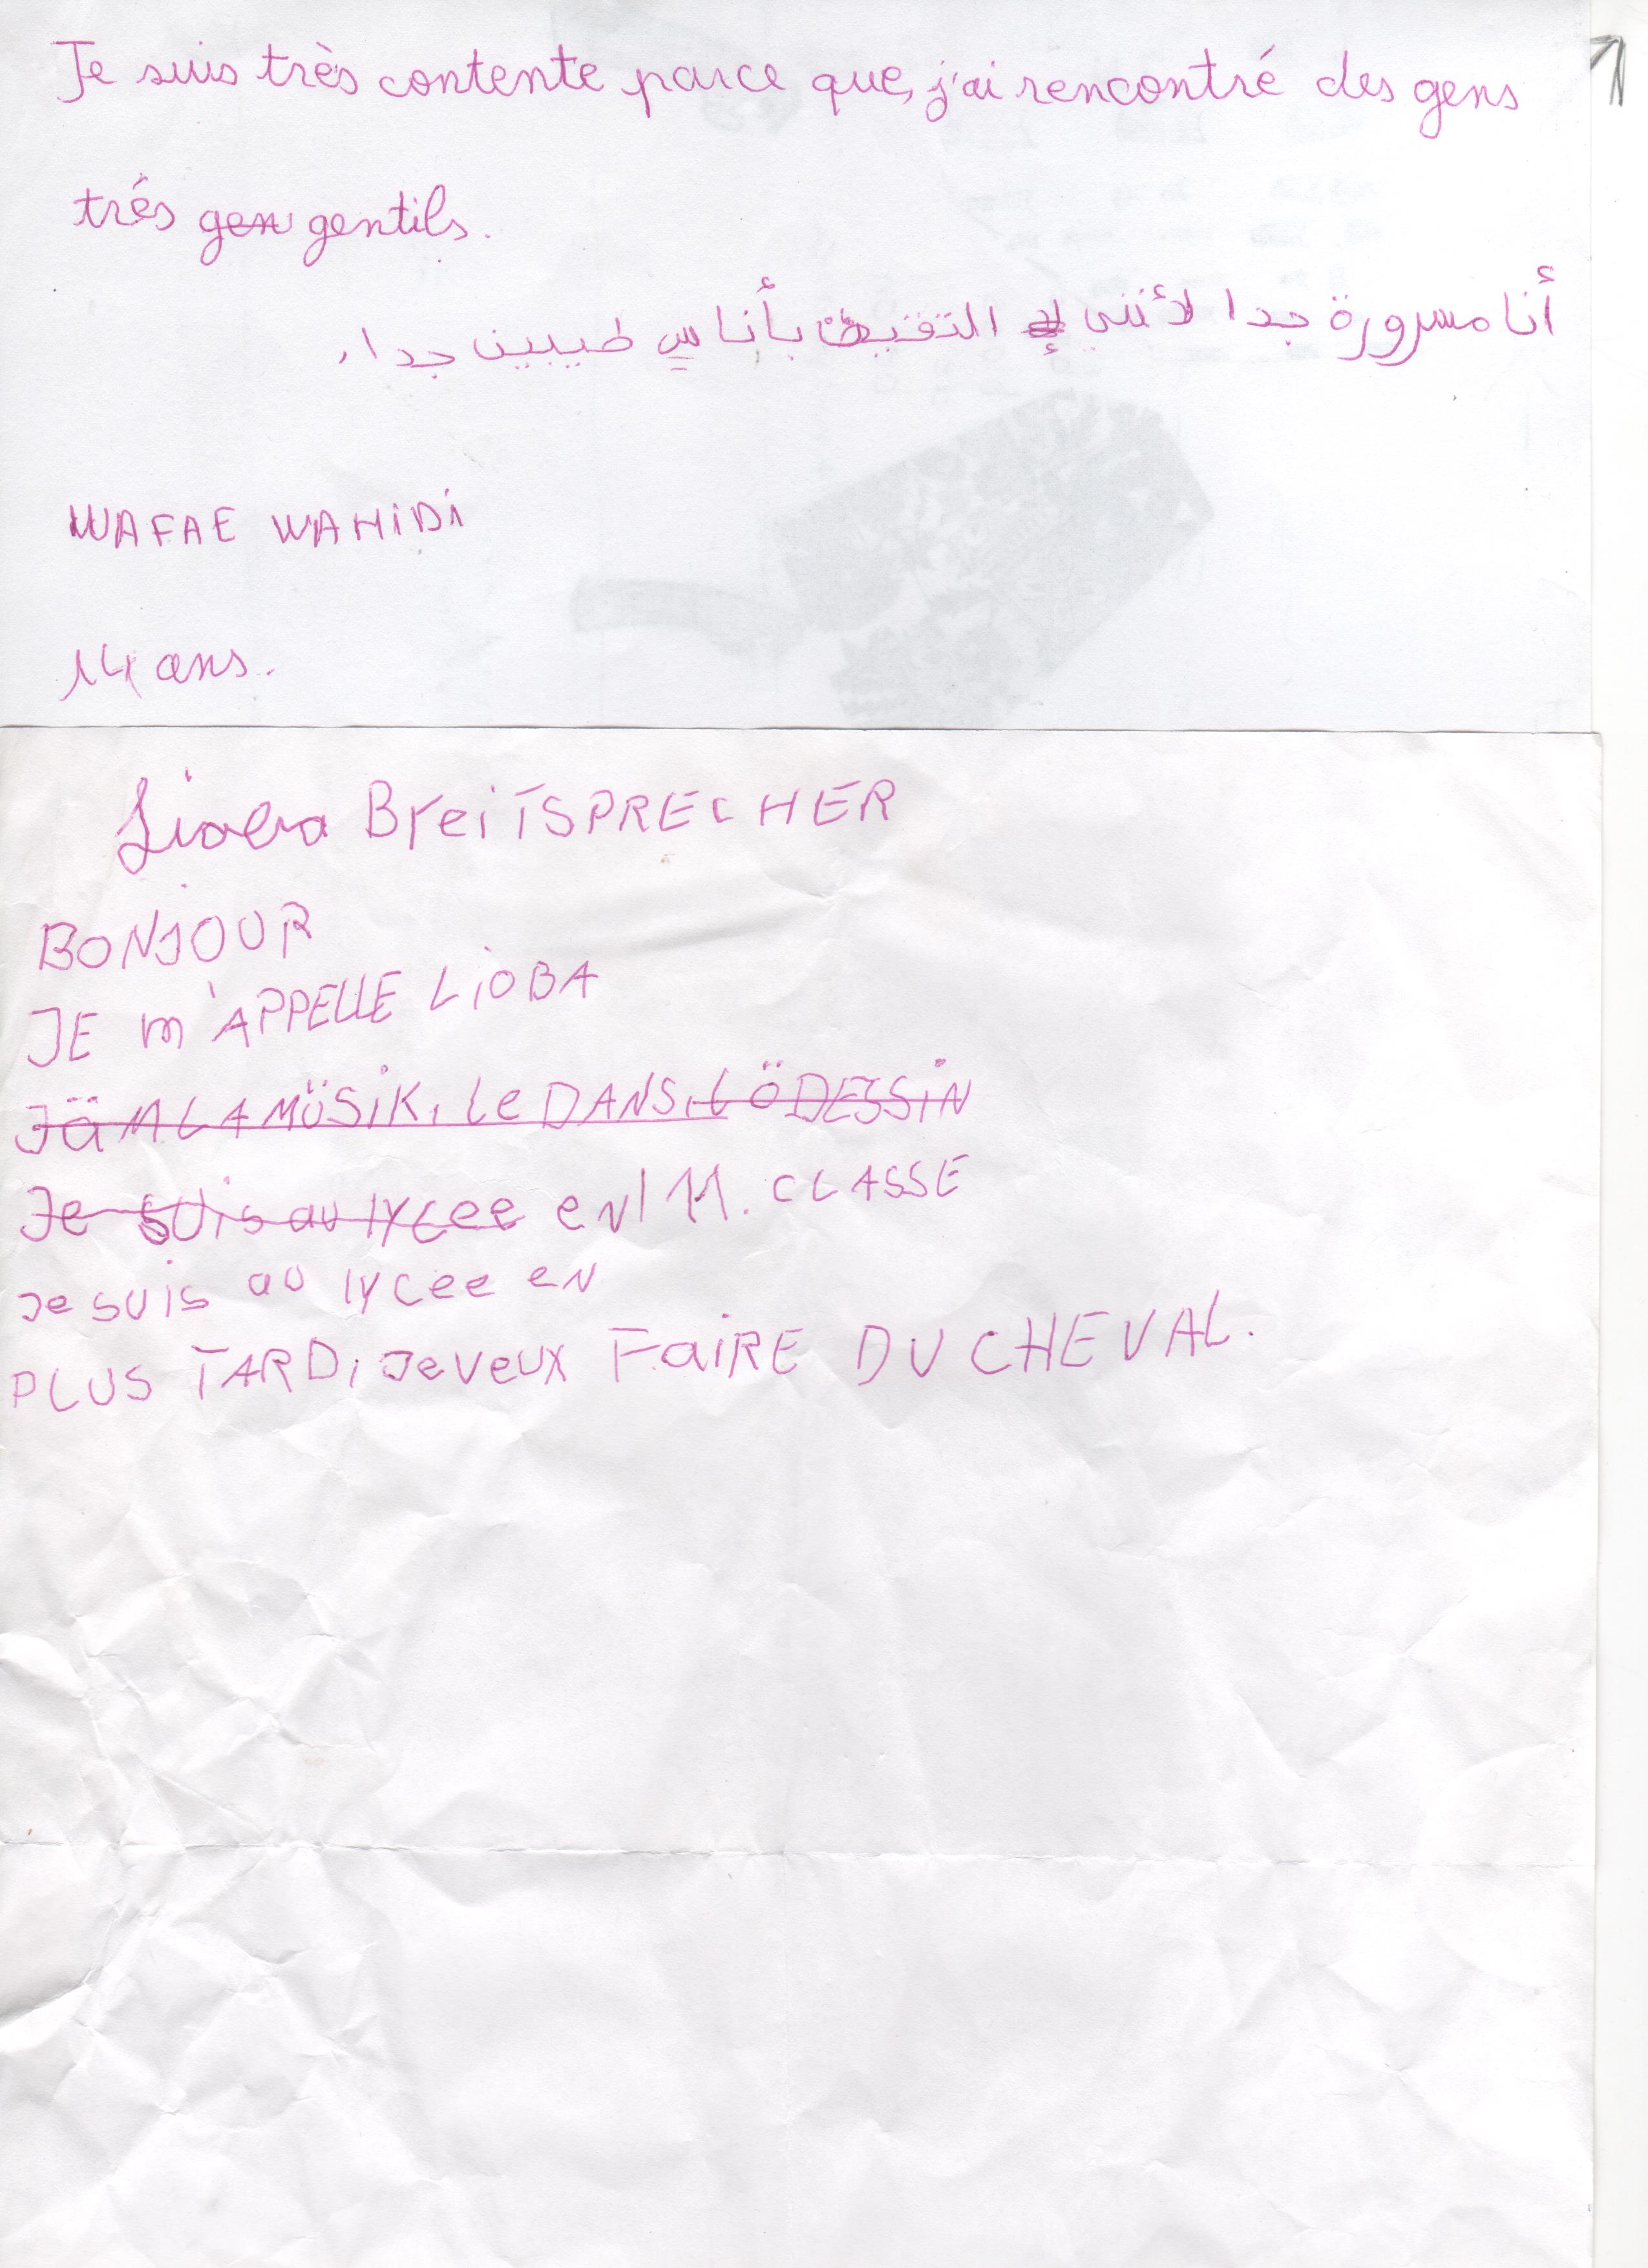 Je suis très contente parce que, j'ai rencontré des gens
trés gen gentils.
أنا مسرورة جدا لأنني التقيت بأناس طيبين جدا.
WAFAE WAHiDi
14 ans.
Lioba BreiTSPRECHER
BONJOUR
JE m'APPELLE LiOBA
Jä M LA MÜSiK, Le DANS, LÖ DESSiN
Je SUis au lycee eN 11. CLASSE
Je suis au lycee eN
PLUS TARD, Je VeUX FaiRE DU CHEVAL.